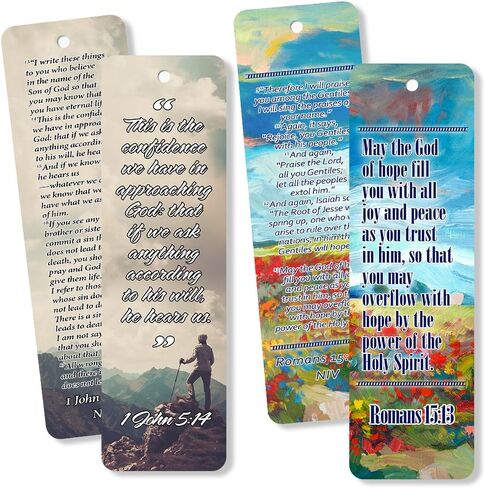 13"I write these things
to you who believe
in the name of the
Son of God so that
you may know that
you have eternal li
14This is the confide
we have in approa
God: that if we ask
anything according
to his will, he hears
15And if we know
he hears us
—whatever we
know that we
have what we as
of him.
16If you see any
brother or siste
commit a sin th
does not lead to
death, you sho
pray and God
give them life.
I refer to thos
whose sin doe
not lead to d
There is a sin
leads to deat
I am not say
that you sho
about that
17All wrong
and there
does not le
1 John
N
“
This is the
confidence
we have in
approaching
God: that
if we ask
anything
according
to his will,
he hears us.
”
1 John 5:14
9Therefore I will praise
you among the Gentiles
I will sing the praises of
your name."
10Again, it says,
"Rejoice, you Gentiles
with his people."
11And again,
"Praise the Lord,
all you Gentiles;
let all the peoples
extol him."
12And again, Isaiah sa
"The Root of Jesse w
spring up, one who
arise to rule over the
nations; in him the
Gentiles will hope
13May the God of h
fill you with all jo
and peace as you
trust in him, so th
may overflow
with hope by the
power of the Holy
Romans 15:
NIV
May the God
of hope fill
you with all
joy and peace
as you trust
in him, so that
you may
overflow with
hope by the
power of the
Holy Spirit.
Romans 15:13